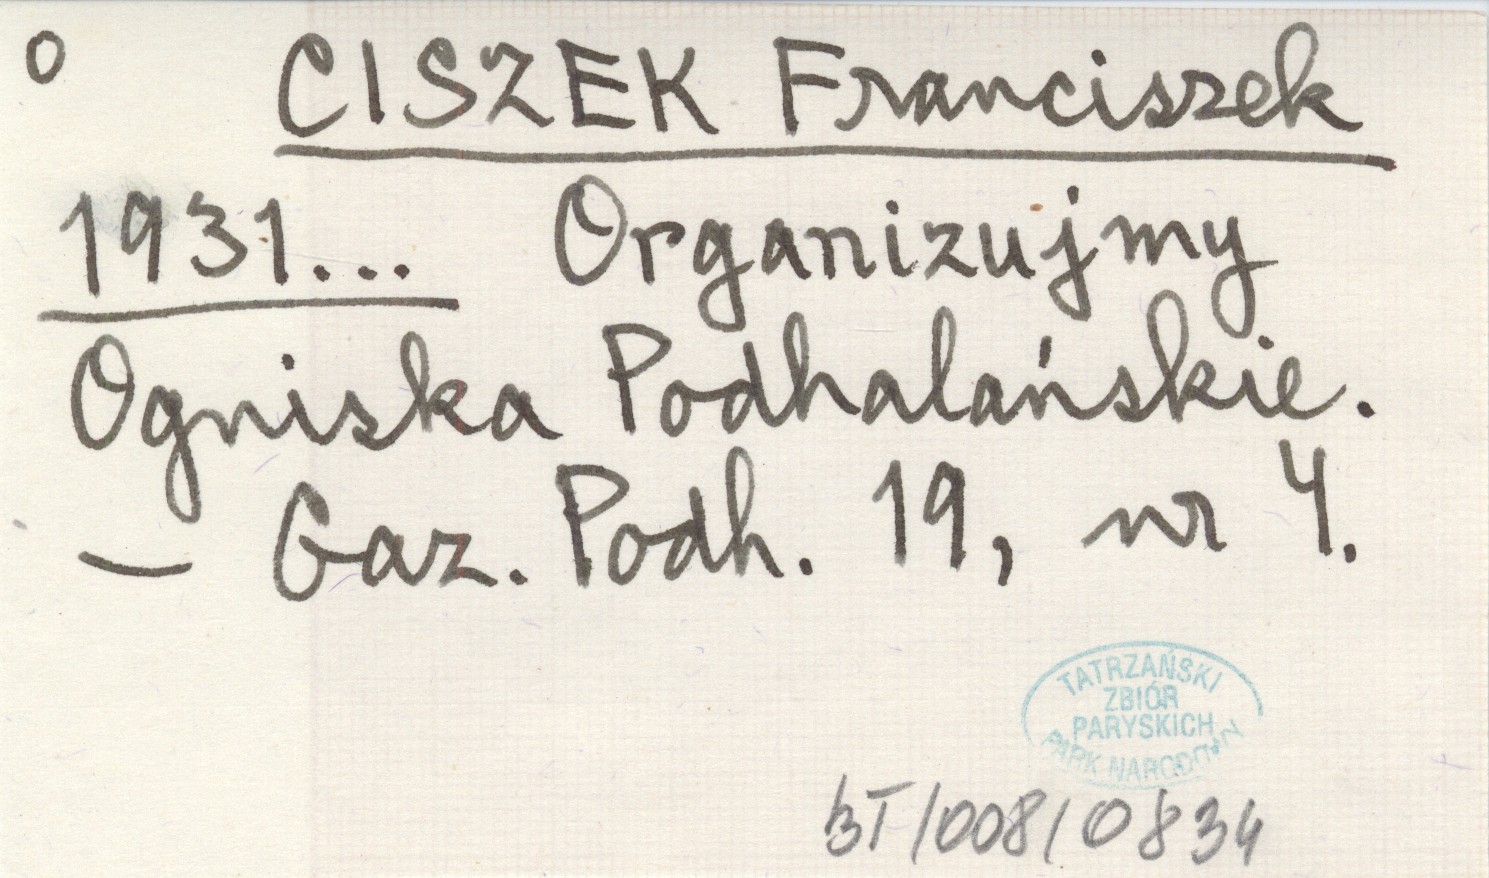 o CISZEK Franciszek
1931... Organizujmy
Ogniska Podhalańskie.
– Gaz. Podh. 19, nr 4.
TATRZAŃSKI
ZBIÓR
PARYSKICH
PARK NARODOWY
BT/008/0834